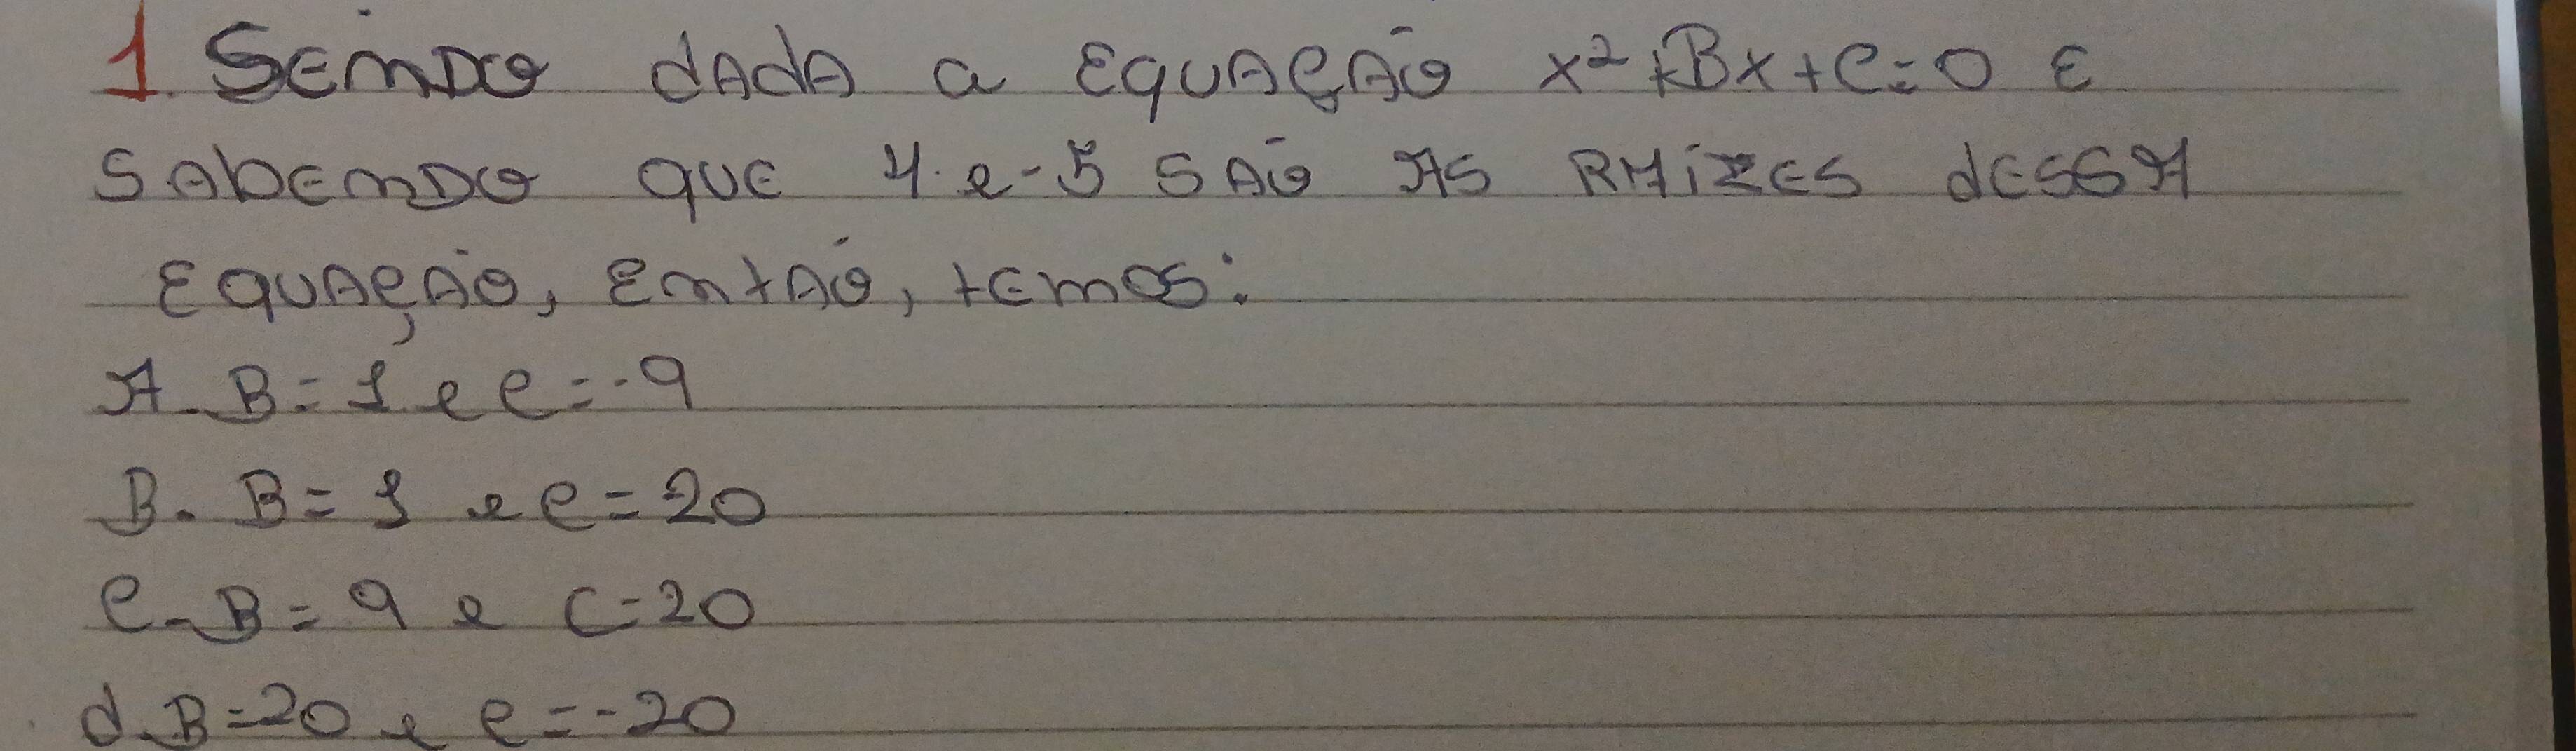 1. SENDO dADA a EQUAÇÃO x²+Bx+C=0 E
SABENDO QUE 4 e -5 SÃO AS RAÍZES dESSA
EQUAÇÃO, ENTÃO, tEMOS:
A. B=1 e C=-9
B. B=1 e C=20
C. B=9 e C=20
d. B=20 e C=-20